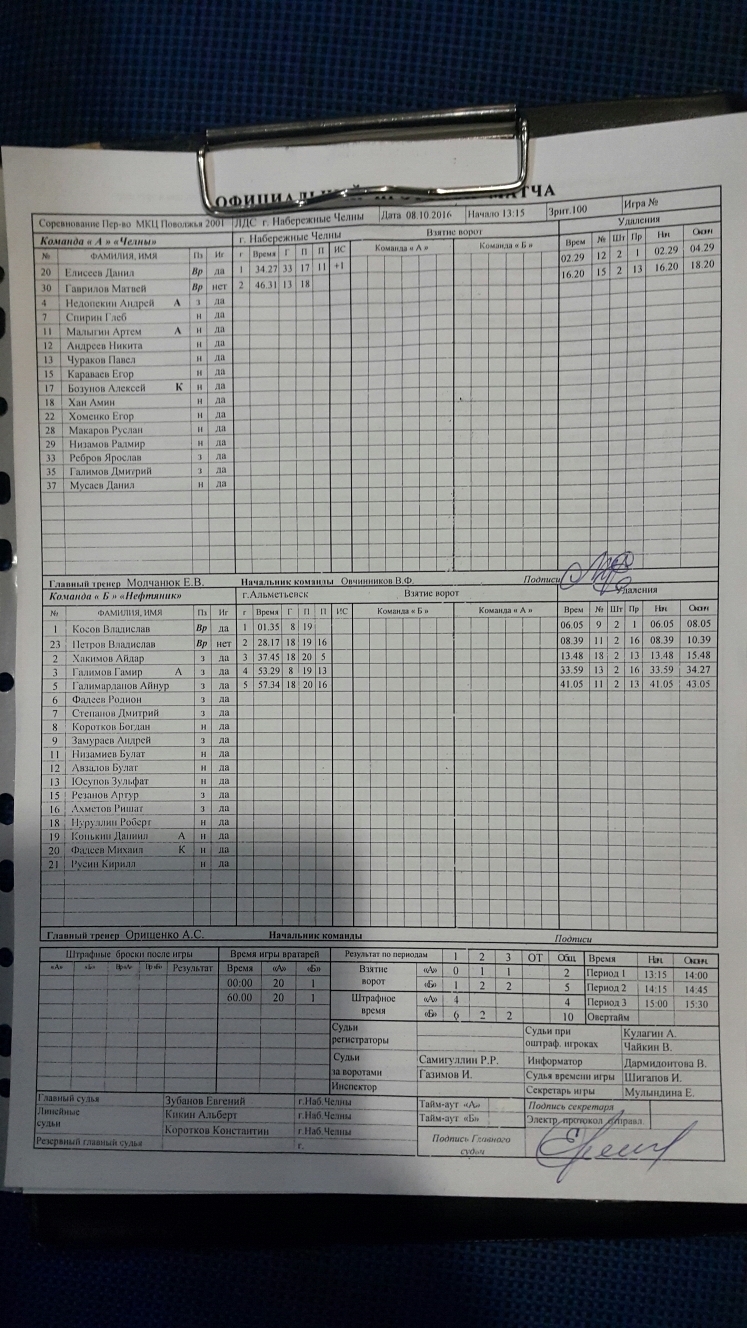 ОФИЦИАЛЬНЫЙ ПРОТОКОЛ МАТЧА
Соревнование Пер-во МКЦ Поволжья 2001 ЛДС г. Набережные Челны Дата 08.10.2016 Начало 13:15 Зрит.100 Игра №
Команда « А » «Челны» г. Набережные Челны Взятие ворот Удаления
№ ФАМИЛИЯ, ИМЯ Пз Иг г Время Г П П ИС Команда « А » Команда « Б » Врем № Шт Пр Нач Оконч
20 Елисеев Данил Вр да 1 34.27 33 17 11 +1 02.29 12 2 1 02.29 04.29
30 Гаврилов Матвей Вр нет 2 46.31 13 18 16.20 15 2 13 16.20 18.20
4 Недопекин Андрей А з да
7 Спирин Глеб н да
11 Малыгин Артем А н да
12 Андреев Никита н да
13 Чураков Павел н да
15 Караваев Егор н да
17 Бозунов Алексей К н да
18 Хан Амин н да
22 Хоменко Егор н да
28 Макаров Руслан н да
29 Низамов Радмир н да
33 Ребров Ярослав з да
35 Галимов Дмитрий з да
37 Мусаев Данил н да
Главный тренер Молчанюк Е.В. Начальник команды Овчинников В.Ф. Подписи
Команда « Б » «Нефтяник» г.Альметьевск Взятие ворот Удаления
№ ФАМИЛИЯ, ИМЯ Пз Иг г Время Г П П ИС Команда « Б » Команда « А » Врем № Шт Пр Нач Оконч
1 Косов Владислав Вр да 1 01.35 8 19 06.05 9 2 1 06.05 08.05
23 Петров Владислав Вр нет 2 28.17 18 19 16 08.39 11 2 16 08.39 10.39
2 Хакимов Айдар з да 3 37.45 18 20 5 13.48 18 2 13 13.48 15.48
3 Галимов Гамир А з да 4 53.29 8 19 13 33.59 13 2 16 33.59 34.27
5 Галимарданов Айнур з да 5 57.34 18 20 16 41.05 11 2 13 41.05 43.05
6 Фадеев Родион з да
7 Степанов Дмитрий з да
8 Коротков Богдан н да
9 Замураев Андрей з да
11 Низамиев Булат н да
12 Авзалов Булат н да
13 Юсупов Зульфат н да
15 Резанов Артур з да
16 Ахметов Ришат з да
18 Нуруллин Роберт н да
19 Конькин Даниил А н да
20 Фадеев Михаил К н да
21 Русин Кирилл н да
Главный тренер Орищенко А.С. Начальник команды Подписи
Штрафные броски после игры Время игры вратарей Результат по периодам 1 2 3 ОТ Общ Время Нач Оконч
«А» «Б» Вр«А» Вр«Б» Результат Время «А» «Б» Взятие ворот «А» 0 1 1 2 Период 1 13:15 14:00
00:00 20 1 «Б» 1 2 2 5 Период 2 14:15 14:45
60.00 20 1 Штрафное время «А» 4 4 Период 3 15:00 15:30
«Б» 6 2 2 10 Овертайм
Судьи регистраторы Судьи при оштраф. игроках Кулагин А.
Чайкин В.
Судьи за воротами Самигуллин Р.Р. Информатор Дармидонтова В.
Газимов И. Судья времени игры Шигапов И.
Инспектор Секретарь игры Мулындина Е.
Главный судья Зубанов Евгений г.Наб.Челны Тайм-аут «А» Подпись секретаря
Линейные судьи Кикин Альберт г.Наб.Челны Тайм-аут «Б» Электр. протокол отправл.
Коротков Константин г.Наб.Челны Подпись Главного судьи
Резервный главный судья г.